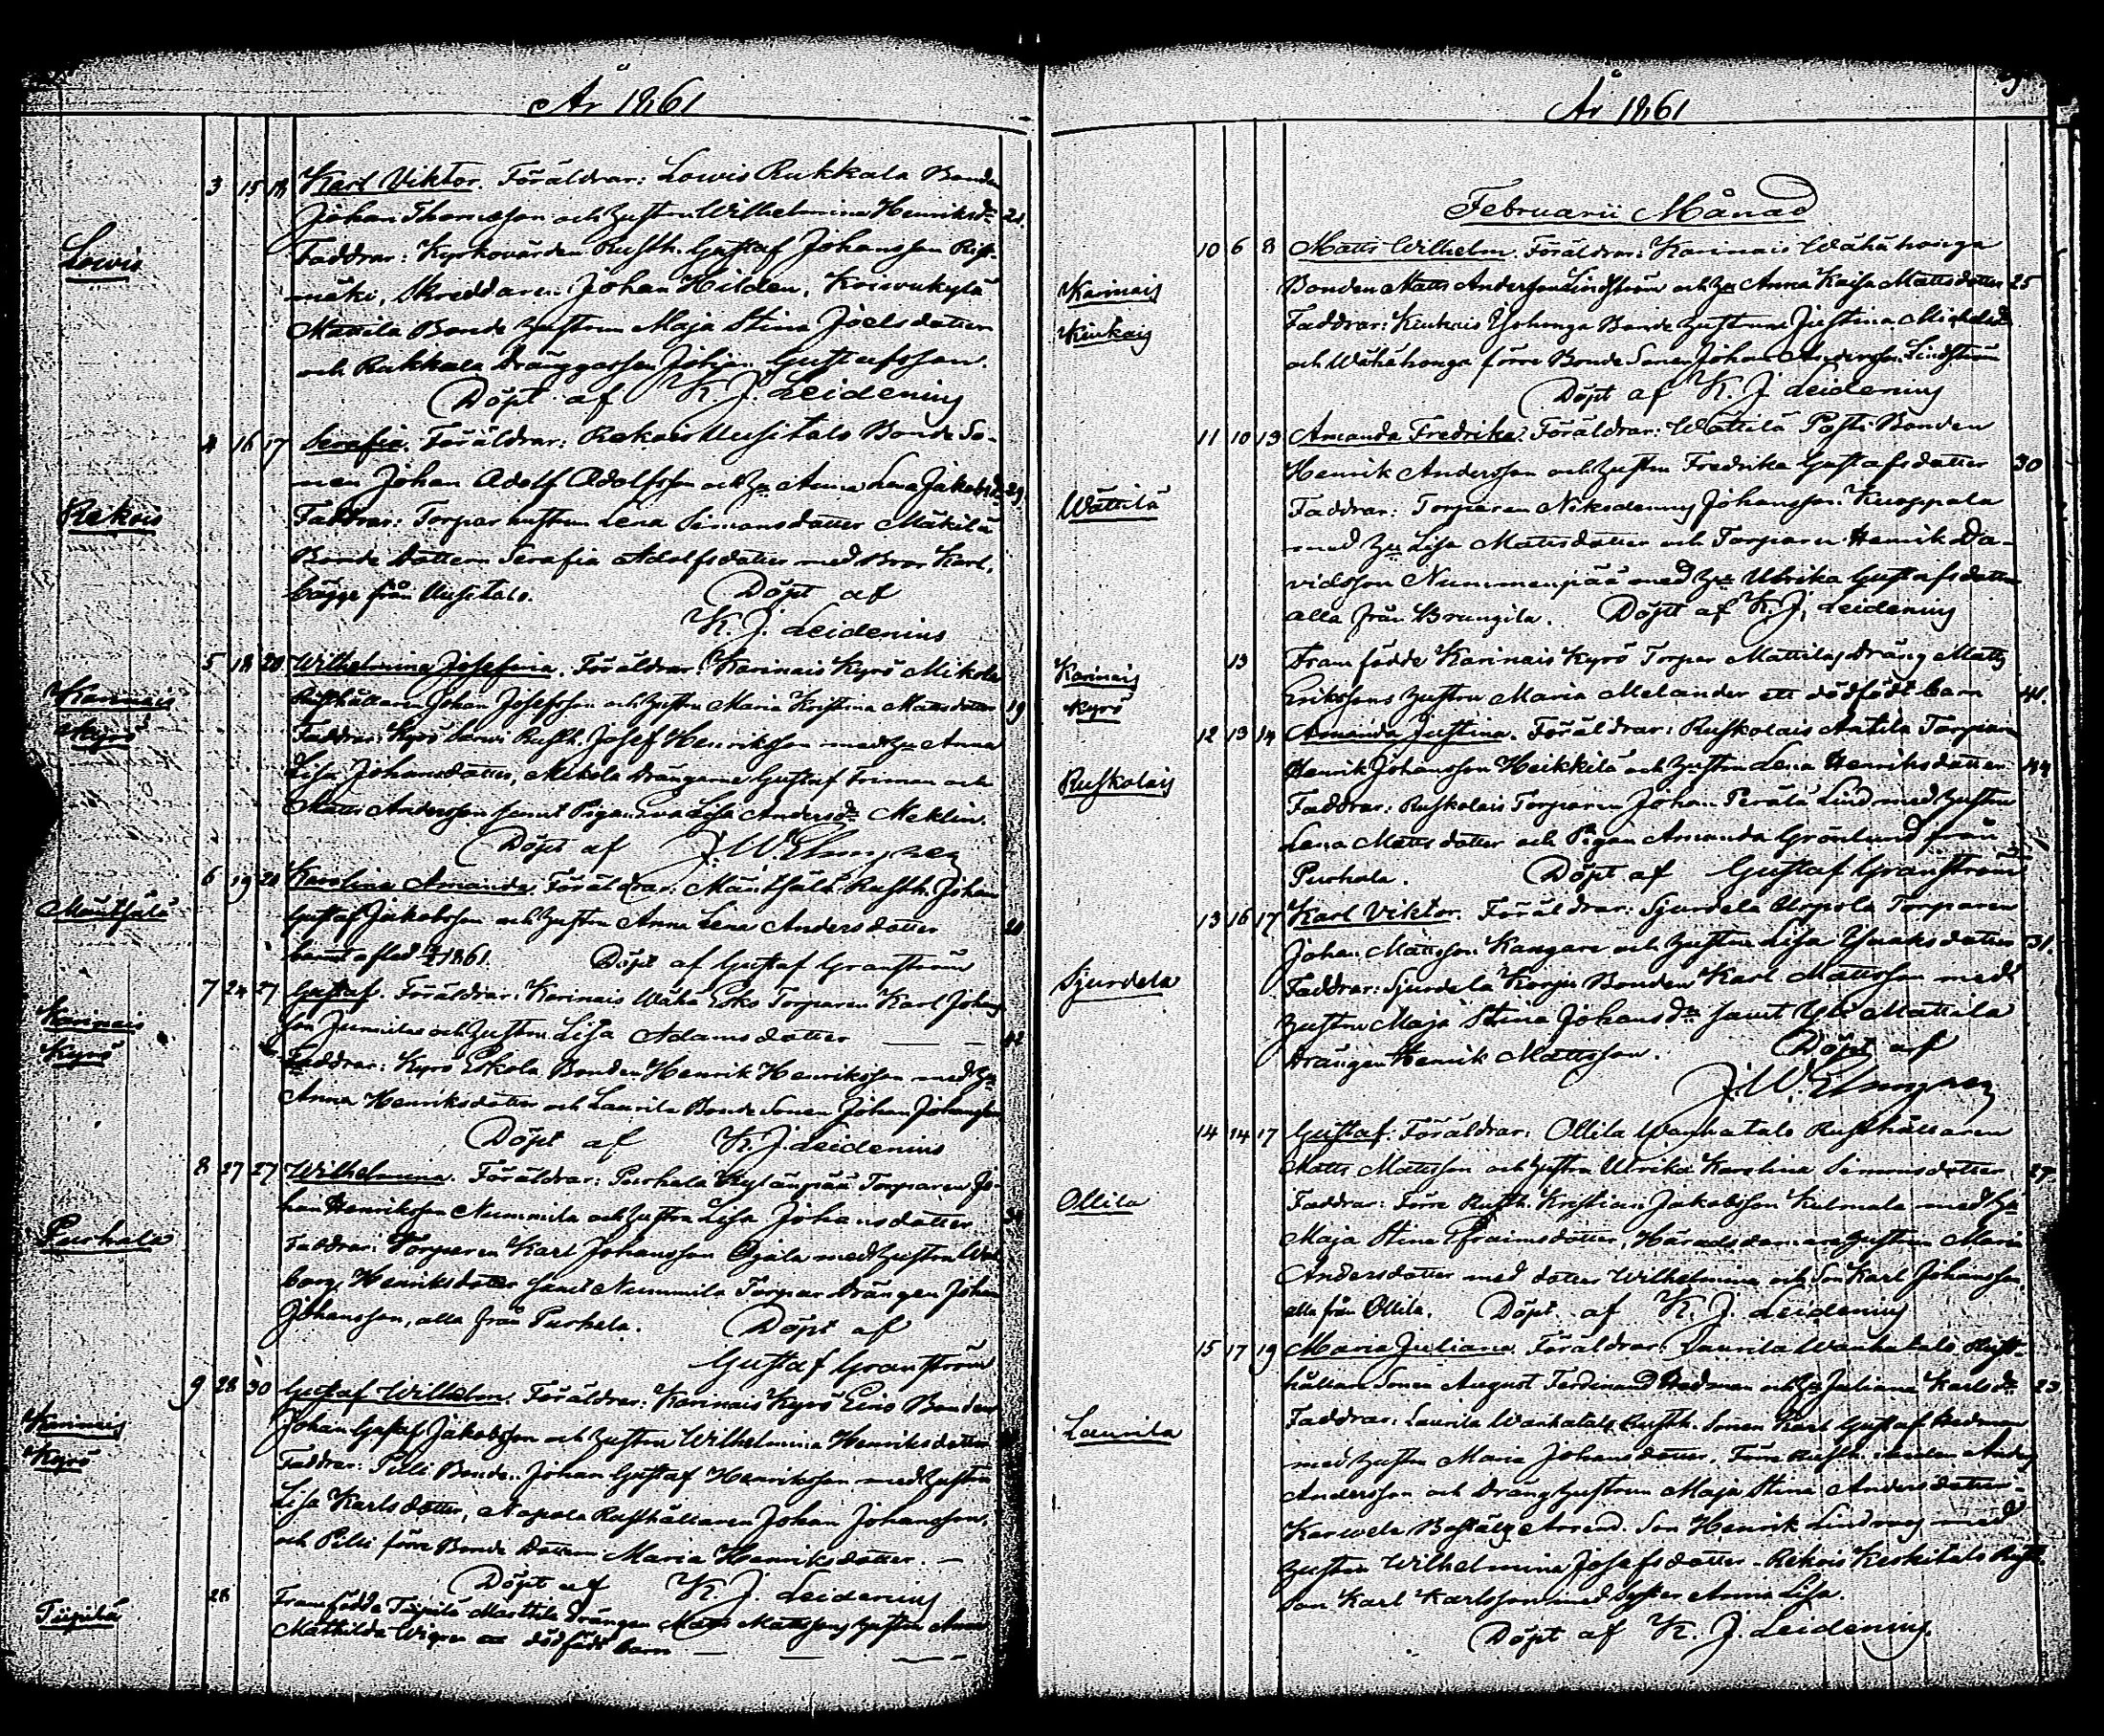 År 1861
Lowis
3 15 18 Karl Viktor. Föräldrar: Lowis Rukkala Bonden
Johan Thomasson och hustru Wilhelmina Henriksdr 21.
Faddrar: Kyrkovärden Rusth. Gustaf Johansson Rist-
mäki, Skreddaren Johan Hilden, Kriivukylä
Mattila Bonde hustrun Maja Stina Joelsdotter
och Rukkala Dränggossen Johan Gustafsson.
Döpt af K. J. Leidenius
Rekois
4 16 17 Serafia. Föräldrar: Rekois Uusitalo Bonde So-
nen Johan Adolf Adolfsson och hu Anna Lena Jakobsdr 29.
Faddrar: Torpar hustrun Lena Simonsdotter Mäkilä
Bonde dottern Serafia Adolfsdotter med Bror Karl,
bägge från Uusitalo. Döpt af
K. J. Leidenius
Karinais
Kyrö
5 18 20 Wilhelmina Josefina. Föräldrar: Karinais Kyrö Mikola
Rusthållaren Johan Josefsson och hustru Maria Kristina Mattsdotter 19
Faddrar: Kyrö Rusth. Josef Henriksson med hu Anna
Lisa Johansdotter, Mikola drängarne Gustaf Friman och
Matts Andersson samt Pigan Eva Lisa Andersdr Meklin.
Döpt af J. W. Elmgren
Mäntsälä
6 19 20 Karolina Amanda. Föräldrar: Mäntsälä Rusth. Johan
Gustaf Jakobsson och hustru Anna Lena Andersdotter 20
barnet afled 1861. Döpt af Gustaf Granström
Karinais
Kyrö
7 24 27 Gustaf. Föräldrar: Karinais Wäha Esko Torparen Karl Johans-
son Junnila och hustru Lisa Adamsdotter 42
Faddrar: Kyrö Eskola Bonden Henrik Henriksson med hu
Anna Henriksdotter och Laurila Bonde Sonen Johan Johansson
Döpt af K. J. Leidenius
Purhala
8 27 27 Wilhelmina. Föräldrar: Purhala Kylänpää Torparen Jo-
han Henriksson Nummila och hustru Lisa Johansdotter
Faddrar: Torparen Karl Johansson Ojala med hustru Wal-
borg Henriksdotter samt Nummila Torpar drängen Johan
Johansson, alla från Purhala. Döpt af
Gustaf Granström
Karinais
Kyrö
9 28 30 Gustaf Wilhelm. Föräldrar: Karinais Kyrö Eino Bonden
Johan Gustaf Jakobsson och hustru Wilhelmina Henriksdotter
Faddrar: Pilli Bonden Johan Gustaf Henriksson med hustru
Lisa Karlsdotter, Napola Rusthållaren Johan Johansson,
och Pilli förre Bonde dottern Maria Henriksdotter.
Döpt af K. J. Leidenius
Tiipilä
28 Framfödde Tiipilä Marttila drängen Matts Mattssons hustru Anna
Mathilda Wigren ett dödfödt barn
År 1861
Februarii Månad
Karinais
Kiukais
10 6 8 Matts Wilhelm. Föräldrar: Karinais Wähähonga
Bonden Matts Andersson Lindström och hu Anna Kaisa Mattsdotter 25
Faddrar: Kiukais Isohonga Bonde hustrun Justina Michelsdr
och Wähähonga förre Bonde Sonen Johan Andersson Lindström
Döpt af K. J. Leidenius
Wättilä
11 10 13 Amanda Fredrika. Föräldrar: Wättilä Posti Bonden
Henrik Andersson och hustru Fredrika Gustafsdotter 30
Faddrar: Torparen Nikodemus Johansson Knoppala
med hu Lisa Mattsdotter och Torparen Henrik Da-
vidsson Nummenpää med hu Ulrika Gustafsdotter
alla från Prunkila. Döpt af K. J. Leidenius
Karinais
Kyrö
13 Framfödde Karinais Kyrö Torpar Mattilas dräng Matts
Erikssons hustru Maria Melander ett dödfödt barn 41.
Ruskolais
12 13 14 Amanda Justina. Föräldrar: Ruskolais Antila Torparen
Henrik Johansson Heikkilä och hustru Lena Henriksdotter 44
Faddrar: Ruskolais Torparen Johan Perälä Lind med hustru
Lena Mattsdotter och Pigan Amanda Grönlund från
Purhala. Döpt af Gustaf Granström
Sjurdela
13 16 17 Karl Viktor. Föräldrar: Sjurdela Urpola Torparen
Johan Mattsson Kangare och hustru Lisa Isaksdotter 31.
Faddrar: Sjurdela Korpi Bonden Karl Mattsson med
hustru Maja Stina Johansdr samt Yli Mattila
drängen Henrik Mattsson. Döpt af
J. W. Elmgren
Ollila
14 14 17 Gustaf. Föräldrar: Ollila Wanhatalo Rusthållaren
Matts Mattsson och hustru Ulrika Karolina Simonsdotter 27.
Faddrar: Förre Rusth. Kristian Jakobsson Kulmala med hu
Maja Stina Efraimsdotter, Häradsdomare hustrun Maria
Andersdotter med dotter Wilhelmina och Son Karl Johansson
alla från Ollila. Döpt af K. J. Leidenius
Laurila
15 17 19 Maria Juliana. Föräldrar: Laurila Wanhatalo Rust-
hållare Sonen August Ferdinand Hedman och hu Juliana Karlsdr 23
Faddrar: Laurila Wanhatalo Rusth. Sonen Karl Gustaf Hedman
med hustru Maria Johansdotter, Förre Rusth. Anders
Andersson och dräng hustrun Maja Stina Andersdotter
Karwela Boställs Arrend. Son Henrik Lindroos med
hustru Wilhelmina Josefsdotter - Rekois Keskitalo Rusth.
son Karl Karlsson med Syster Anna Lisa.
Döpt af K. J. Leidenius.